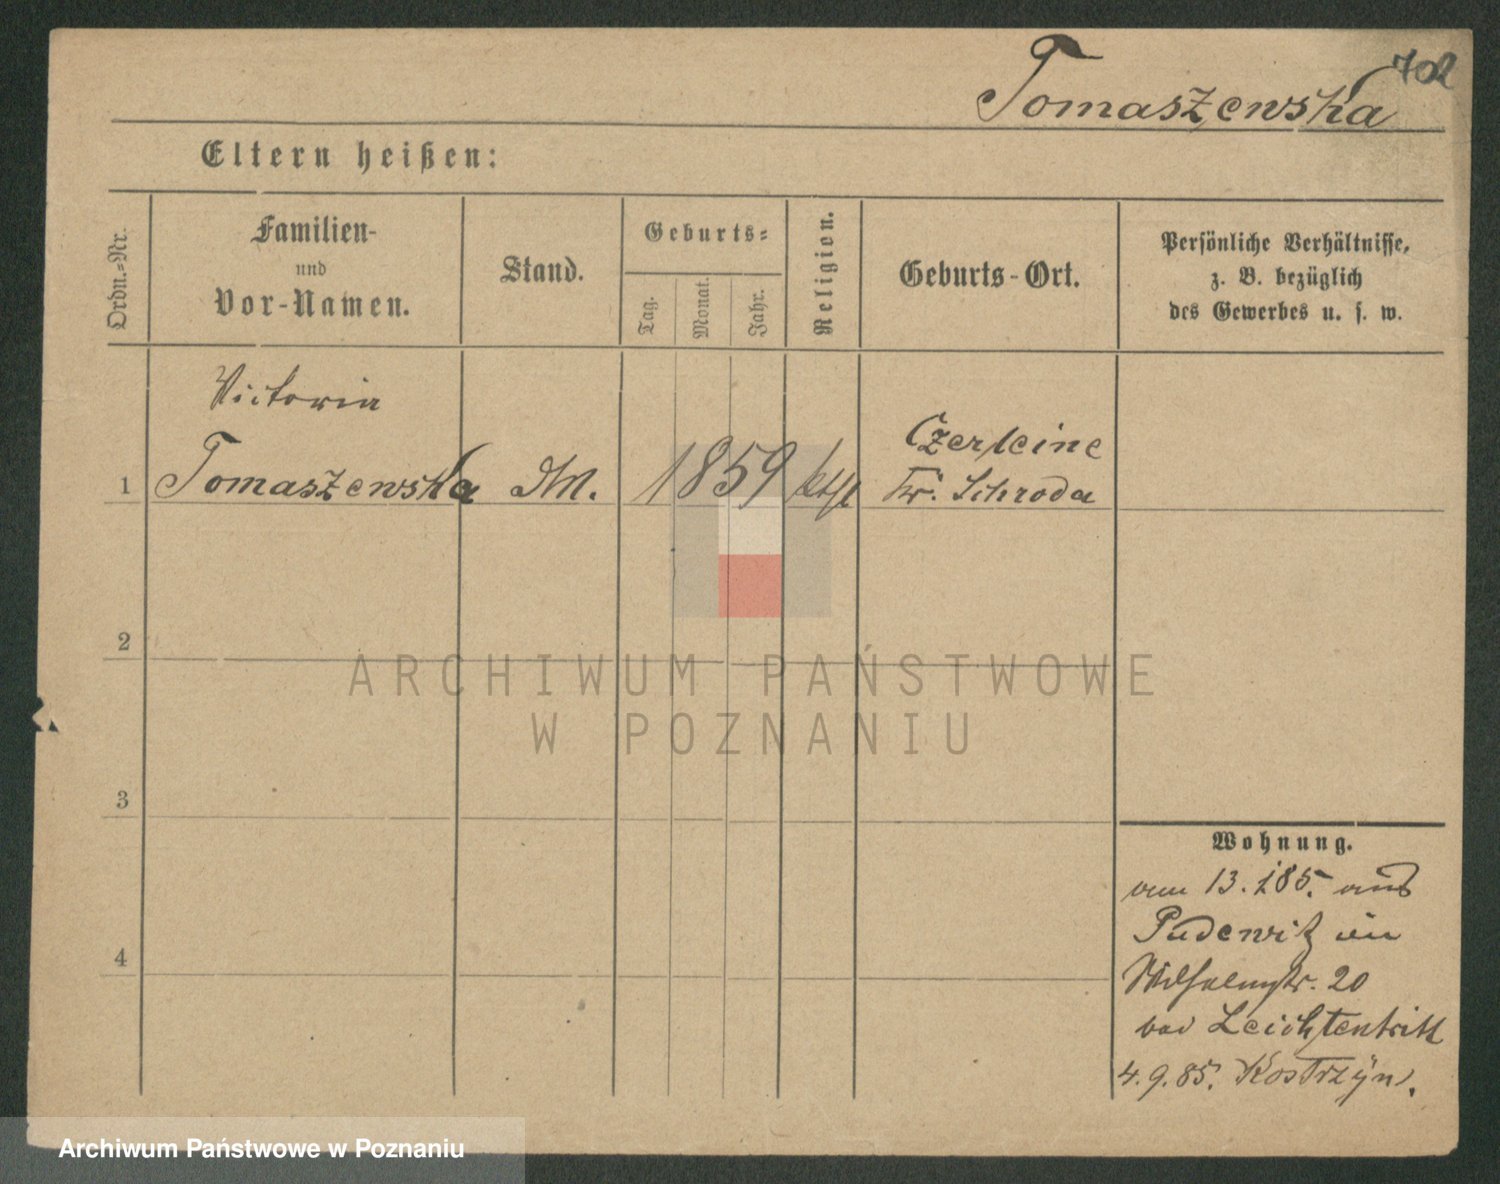 702
Tomaszewska
Eltern heißen:
Ordn.=Nr.
Familien-
und
Vor-Namen.
Stand.
Geburts=
Tag.
Monat.
Jahr.
Religion.
Geburts-Ort.
Persönliche Verhältnisse,
z. B. bezüglich
des Gewerbes u. s. w.
Victoria
1 Tomaszewska M. 1859 kth
Czerleine
Kr. Schroda
2
ARCHIWUM PAŃSTWOWE
W POZNANIU
3
Wohnung.
am 13. 1 85. aus
Pudewitz in
Wilhelmstr. 20
bei Leichtentritt
4
4. 9. 85. Kostrzyn.
Archiwum Państwowe w Poznaniu